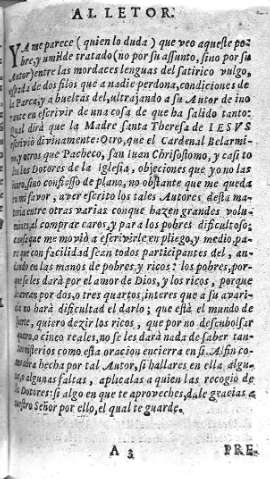 AL LETOR.
YA me parece (quien lo duda) que veo aqueste po-
bre, y umilde tratado (no por su assunto, sino por su
Autor) entre las mordaces lenguas del satirico vulgo,
espada de dos filos que a nadie perdona, condiciones de
la Parca, y a hueltas del, ultrajando a su Autor de
en escrivir de una cosa de que ha salido tanto:
qual dirà que la Madre santa Theresa de IESVS
escrivio divinamente: Otro, que el Cardenal Belarmi-
no, y otros que Pacheco, san Iuan Chrisostomo, y casi to
los Dotores de la Iglesia, objeciones que yo no las
sino confiesso de plano, no obstante que me queda
mi favor, aver escrito los tales Autores desta ma
entre otras varias conque hazen grandes volu-
al comprar caros, y para los pobres dificultoso;
que me moviò a escrivirle en pliego, y medio, pa-
que con facilidad sean todos participantes del, an-
en las manos de pobres, y ricos: los pobres, por-
se les darà por el amor de Dios, y los ricos, porque
por dos, o tres quartos, interes que a su avari-
no harà dificultad el darlo; que està el mundo de
suerte, quiero dezir los ricos, que por no desembolsar
quatro, o cinco reales, no se les darà nada de saber tan-
misterios como esta oracion encierra en si. Al fin co-
mo obra hecha por tal Autor, si hallares en ella algu-
na, o algunas faltas, aplicalas a quien las recogio de
Dotores: si algo en que te aproveches, dale gracias a
nuestro Señor por ello, el qual te guarde.
A 3 PRE